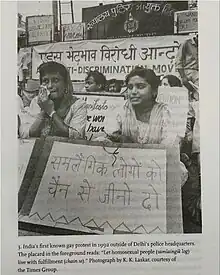 एड्स भेदभाव विरोधी आन्दो
TI-DISCRIMINATION MOV
समलैंगिक लोगों को
चैन से जीने दो
3. India's first known gay protest in 1992 outside of Delhi's police headquarters.
The placard in the foreground reads: "Let homosexual people (samlaingik log)
live with fulfillment (chain se)." Photograph by K. K. Laskar, courtesy of
the Times Group.